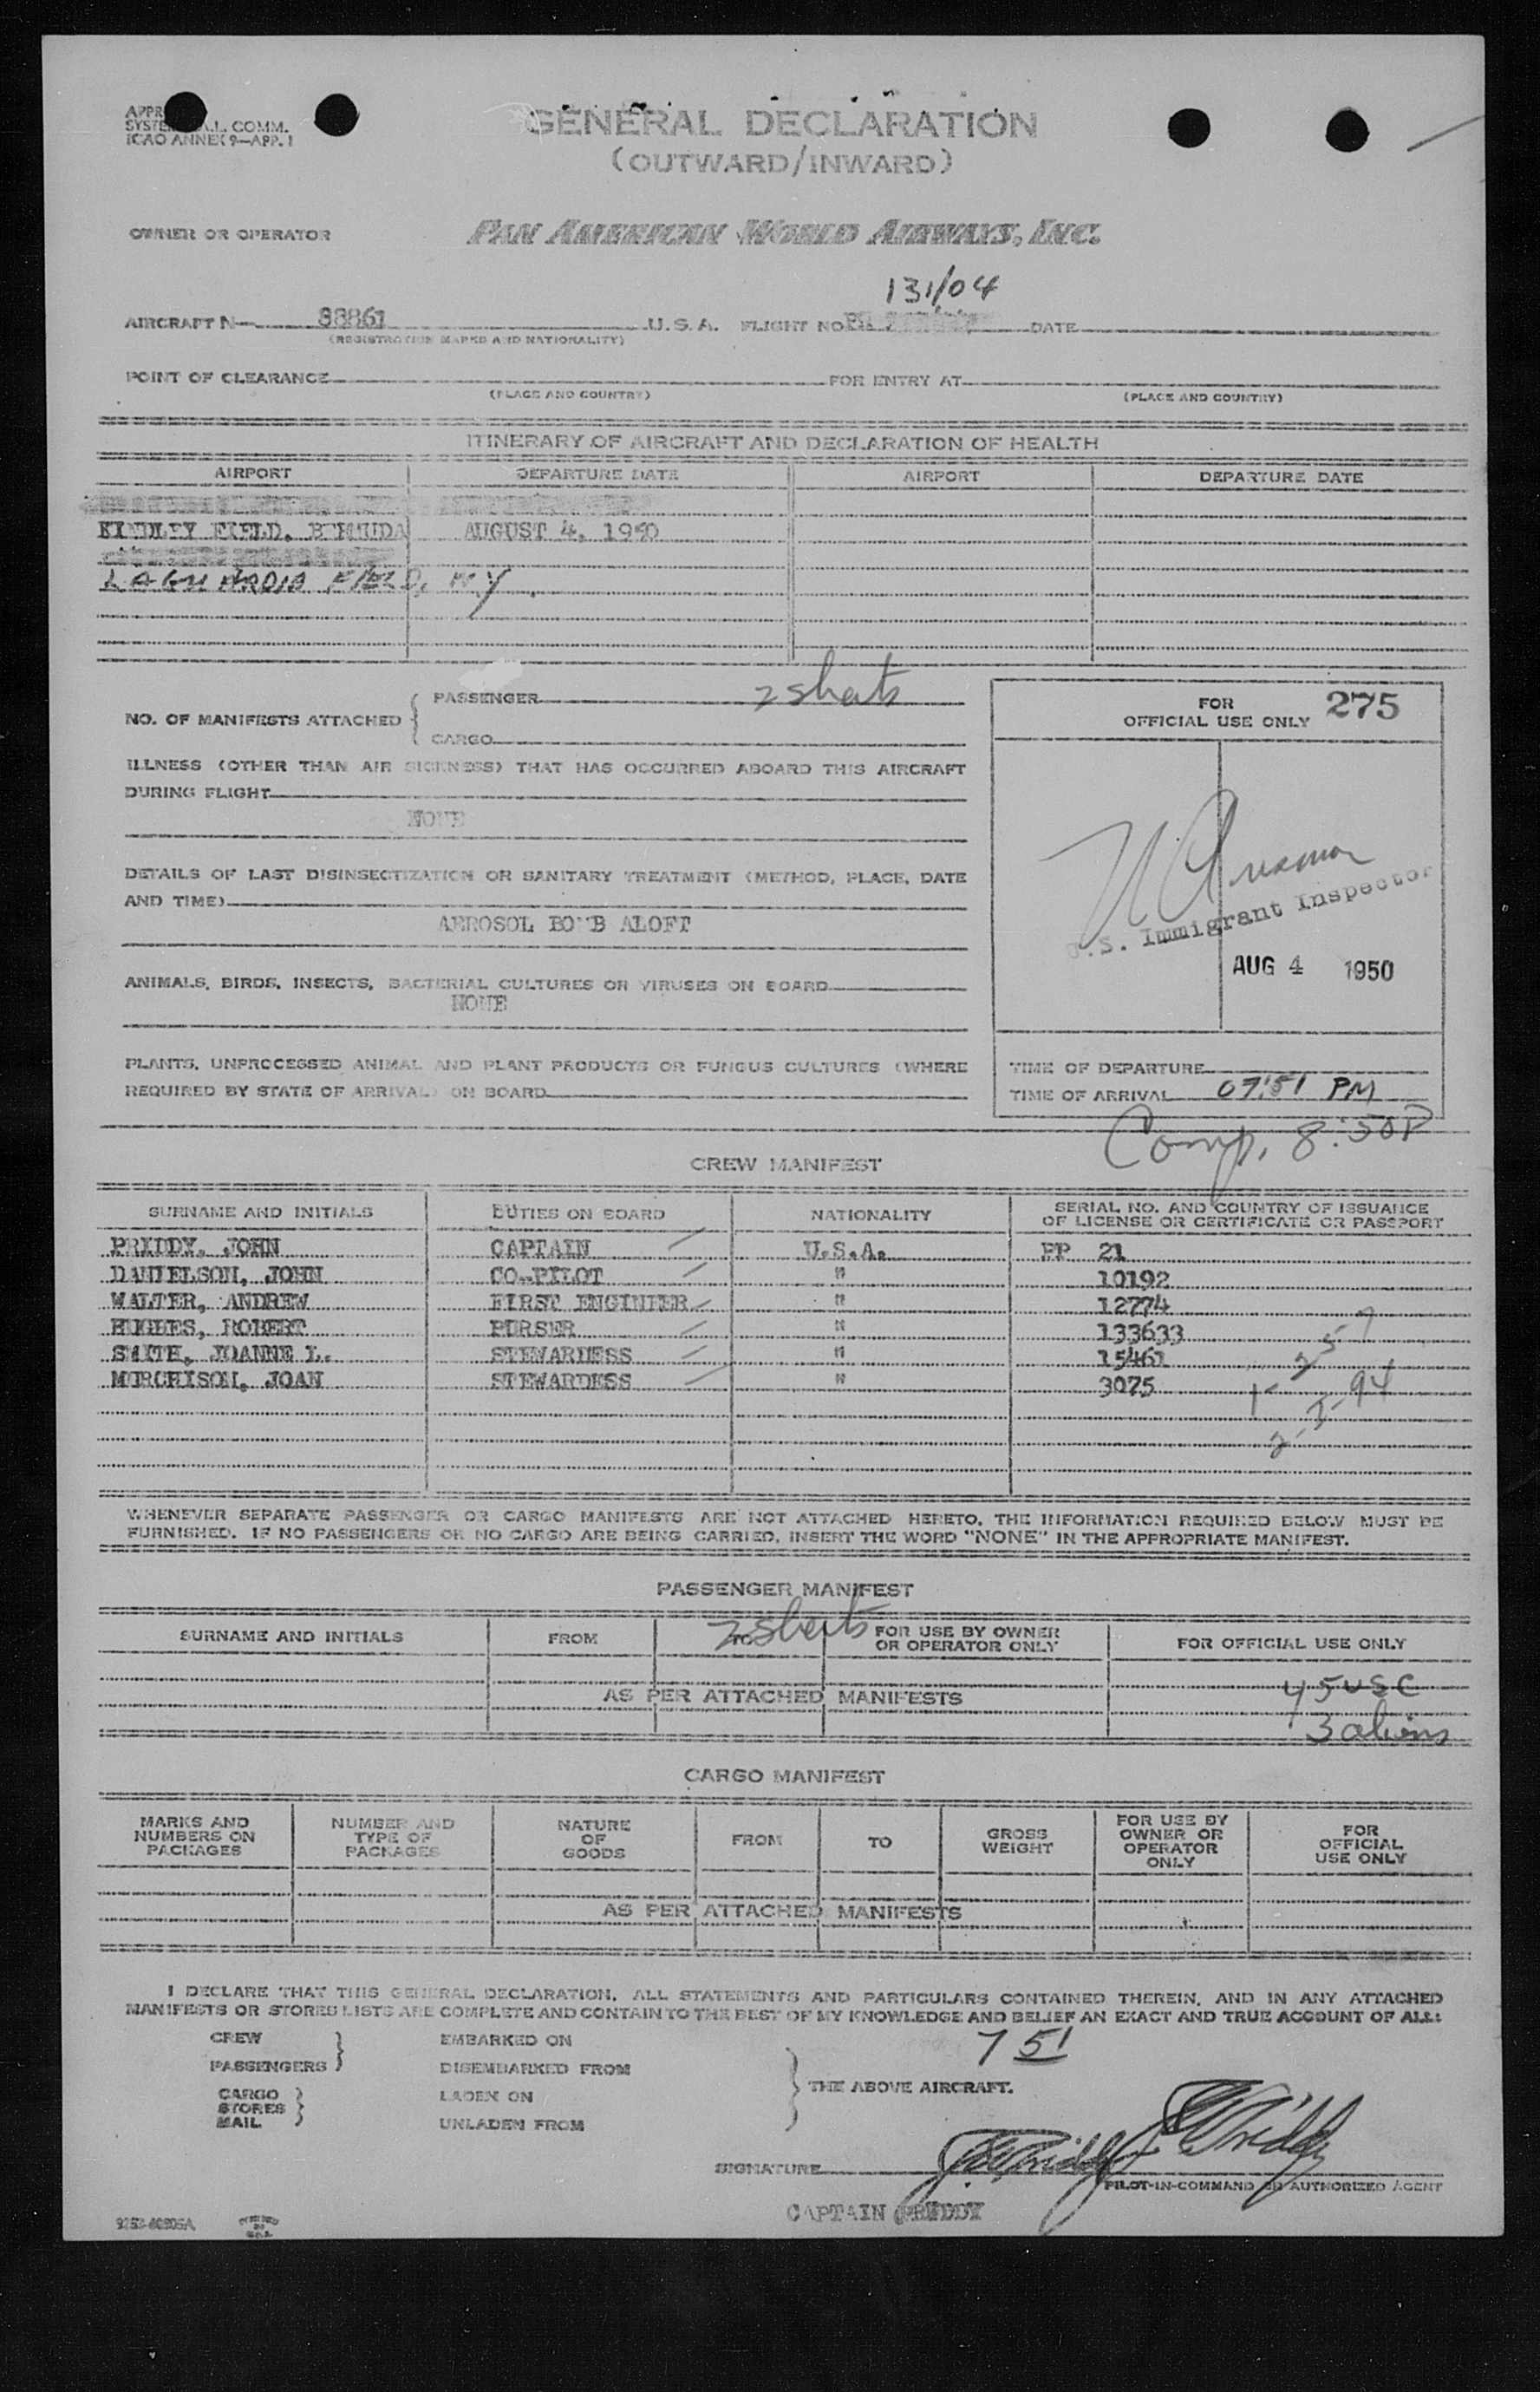 SYSTE A.L. COMM.
ICAO ANNEX 9—APP. 1
GENERAL DECLARATION
(OUTWARD/INWARD)
OWNER OR OPERATOR PAN AMERICAN WORLD AIRWAYS, INC.
131/04
AIRCRAFT N— 88861 U.S.A. FLIGHT NO. DATE
(REGISTRATION MARKS AND NATIONALITY)
POINT OF CLEARANCE FOR ENTRY AT
(PLACE AND COUNTRY) (PLACE AND COUNTRY)
ITINERARY OF AIRCRAFT AND DECLARATION OF HEALTH
AIRPORT DEPARTURE DATE AIRPORT DEPARTURE DATE
KINDLEY FIELD, BERMUDA AUGUST 4, 1950
LAGUARDIA FIELD, NY.
NO. OF MANIFESTS ATTACHED { PASSENGER 2 sheets
CARGO
FOR OFFICIAL USE ONLY 275
ILLNESS (OTHER THAN AIR SICKNESS) THAT HAS OCCURRED ABOARD THIS AIRCRAFT
DURING FLIGHT
NONE
DETAILS OF LAST DISINSECTIZATION OR SANITARY TREATMENT (METHOD, PLACE, DATE
AND TIME)
AEROSOL BOMB ALOFT
U.S. Immigrant Inspector
AUG 4 1950
ANIMALS, BIRDS, INSECTS, BACTERIAL CULTURES OR VIRUSES ON BOARD
NONE
PLANTS, UNPROCESSED ANIMAL AND PLANT PRODUCTS OR FUNGUS CULTURES (WHERE
REQUIRED BY STATE OF ARRIVAL) ON BOARD
TIME OF DEPARTURE
TIME OF ARRIVAL 07:51 PM
Comp. 8:50P
CREW MANIFEST
SURNAME AND INITIALS DUTIES ON BOARD NATIONALITY SERIAL NO. AND COUNTRY OF ISSUANCE
OF LICENSE OR CERTIFICATE OR PASSPORT
PRIDDY, JOHN CAPTAIN U.S.A. PP 21
DANIELSON, JOHN CO-PILOT " 10192
WALTER, ANDREW FIRST ENGINEER " 12774
HUGHES, ROBERT PURSER " 133633
SMITH, JOANNE L. STEWARDESS " 15461
MURCHISON, JOAN STEWARDESS " 3075
1- 2 5 7
2- 3-94
WHENEVER SEPARATE PASSENGER OR CARGO MANIFESTS ARE NOT ATTACHED HERETO, THE INFORMATION REQUIRED BELOW MUST BE
FURNISHED. IF NO PASSENGERS OR NO CARGO ARE BEING CARRIED, INSERT THE WORD "NONE" IN THE APPROPRIATE MANIFEST.
PASSENGER MANIFEST
2 sheets
SURNAME AND INITIALS FROM TO FOR USE BY OWNER
OR OPERATOR ONLY FOR OFFICIAL USE ONLY
AS PER ATTACHED MANIFESTS
45 USC
3 aliens
CARGO MANIFEST
MARKS AND
NUMBERS ON
PACKAGES
NUMBER AND
TYPE OF
PACKAGES
NATURE
OF
GOODS
FROM
TO
GROSS
WEIGHT
FOR USE BY
OWNER OR
OPERATOR
ONLY
FOR
OFFICIAL
USE ONLY
AS PER ATTACHED MANIFESTS
I DECLARE THAT THIS GENERAL DECLARATION, ALL STATEMENTS AND PARTICULARS CONTAINED THEREIN, AND IN ANY ATTACHED
MANIFESTS OR STORES LISTS ARE COMPLETE AND CONTAIN TO THE BEST OF MY KNOWLEDGE AND BELIEF AN EXACT AND TRUE ACCOUNT OF ALL:
7 51
CREW EMBARKED ON
PASSENGERS DISEMBARKED FROM
THE ABOVE AIRCRAFT.
CARGO LADEN ON
STORES
MAIL UNLADEN FROM
SIGNATURE J W Priddy J W Priddy
PILOT-IN-COMMAND OR AUTHORIZED AGENT
CAPTAIN PRIDDY